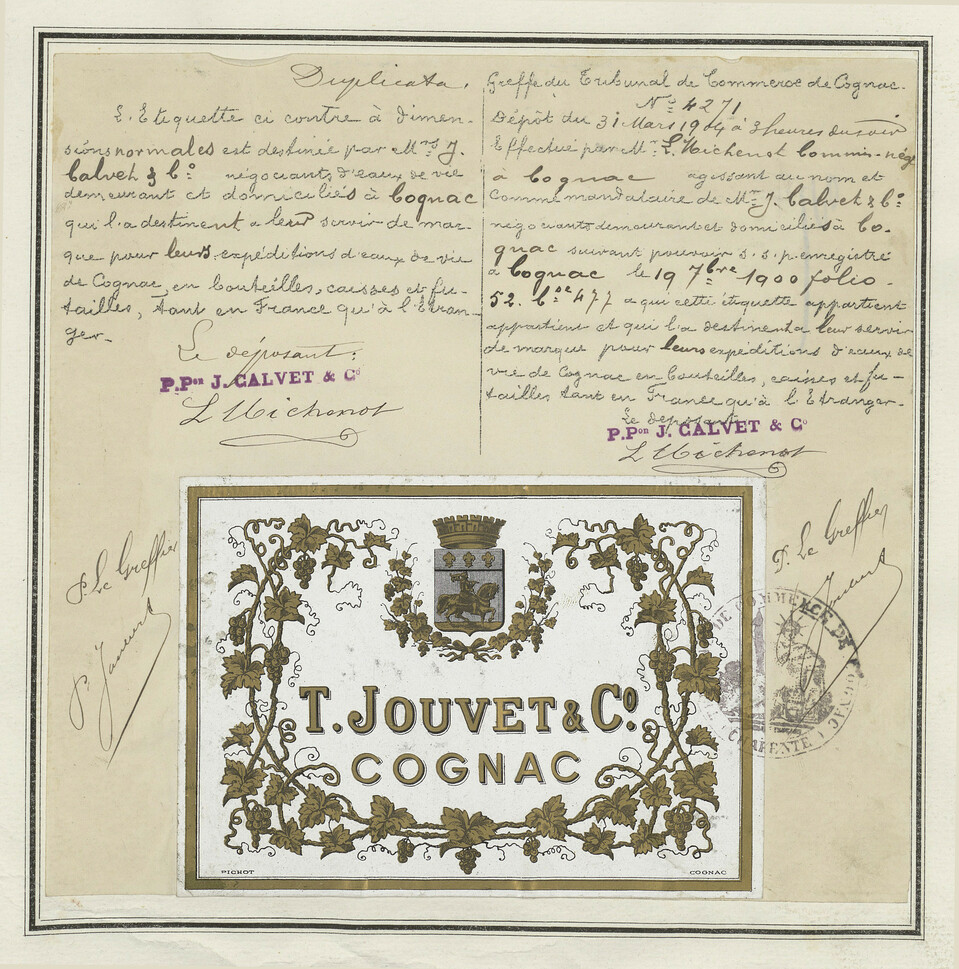 Duplicata.
L'Etiquette ci contre à dimen-
sions normales est destinée par Mrs J.
Calvet & Co négociants d'eaux de vie
demeurant et domiciliés à Cognac
qui l'a destinent a leur servir de mar-
que pour leurs expéditions d'eaux de vie
de Cognac, en bouteilles, caisses et fu-
tailles, tant en France qu'à l'Etran-
ger-
Le déposant:
P.Pon J. CALVET & Co
L Michenot
Greffe du Tribunal de Commerce de Cognac.
No 4271
Dépôt du 31 Mars 1904 à 3 heures du soir
Effectué par Mr L. Michenot Commis-nég
à Cognac agissant au nom et
comme mandataire de Mr J. Calvet & Co
négociants demeurant et domiciliés à Co-
gnac suivant pouvoir s.s.p. enregistré
a Cognac le 19 7bre 1900 folio
52. Coe 477 a qui cette étiquette appartient
appartient et qui l'a destinent a leur servir
de marque pour leurs expéditions d'eaux de
vie de Cognac en bouteilles, caisses et fu-
tailles tant en France qu'à l'Etranger-
Le déposant
P.Pon J. CALVET & Co
L Michenot
P. Le Greffier
P. Le Greffier
T. JOUVET & Co
COGNAC
PICHOT
COGNAC
DE COMMERCE DE COGNAC
CHARENTE